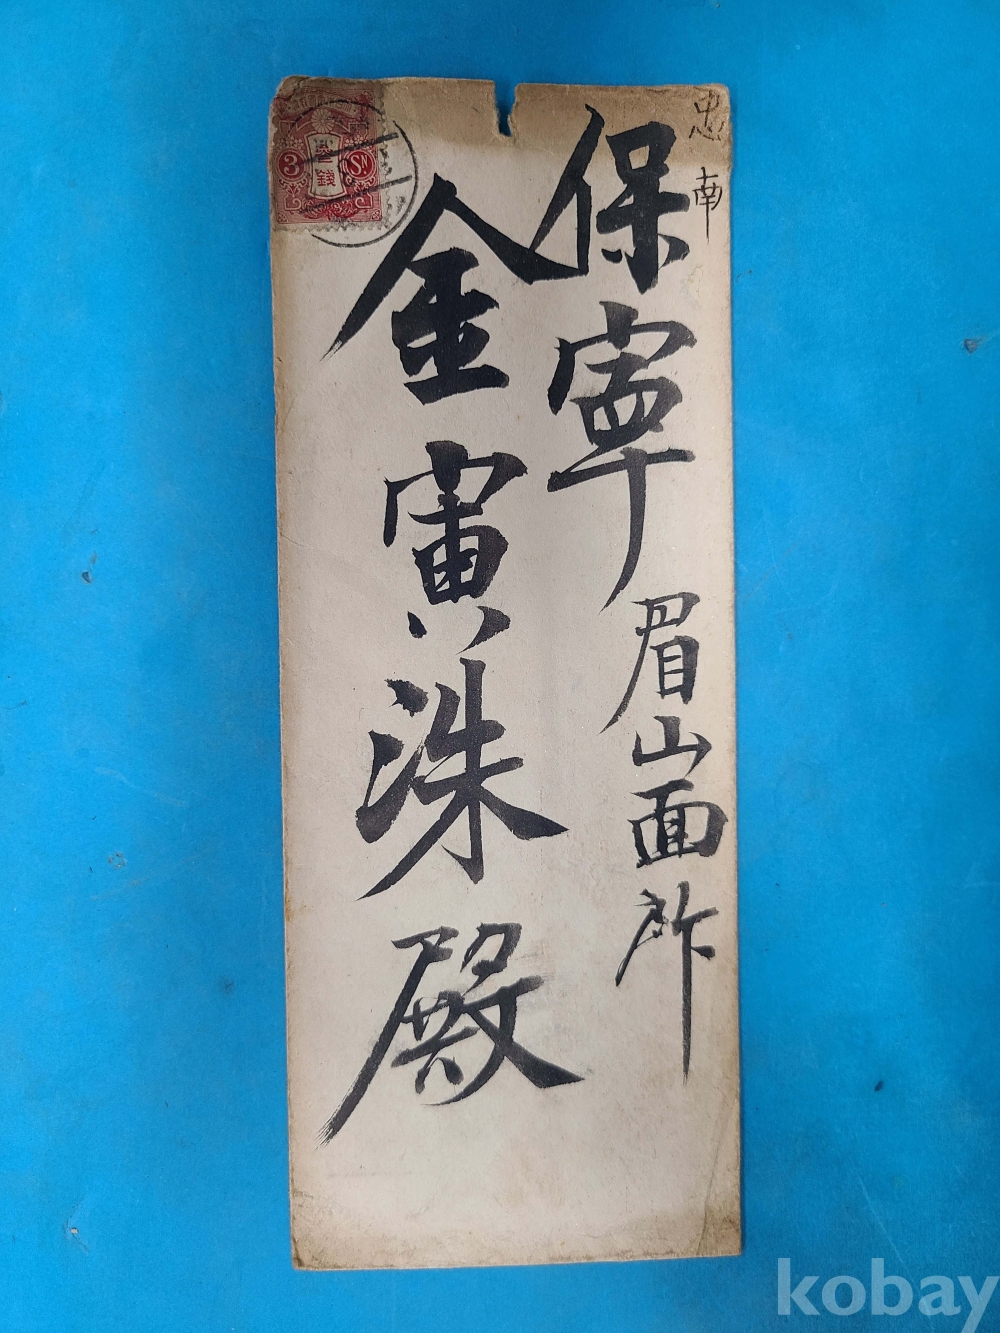 忠南
保寧眉山面所
金寅洙殿
3
SN
参錢
kobay